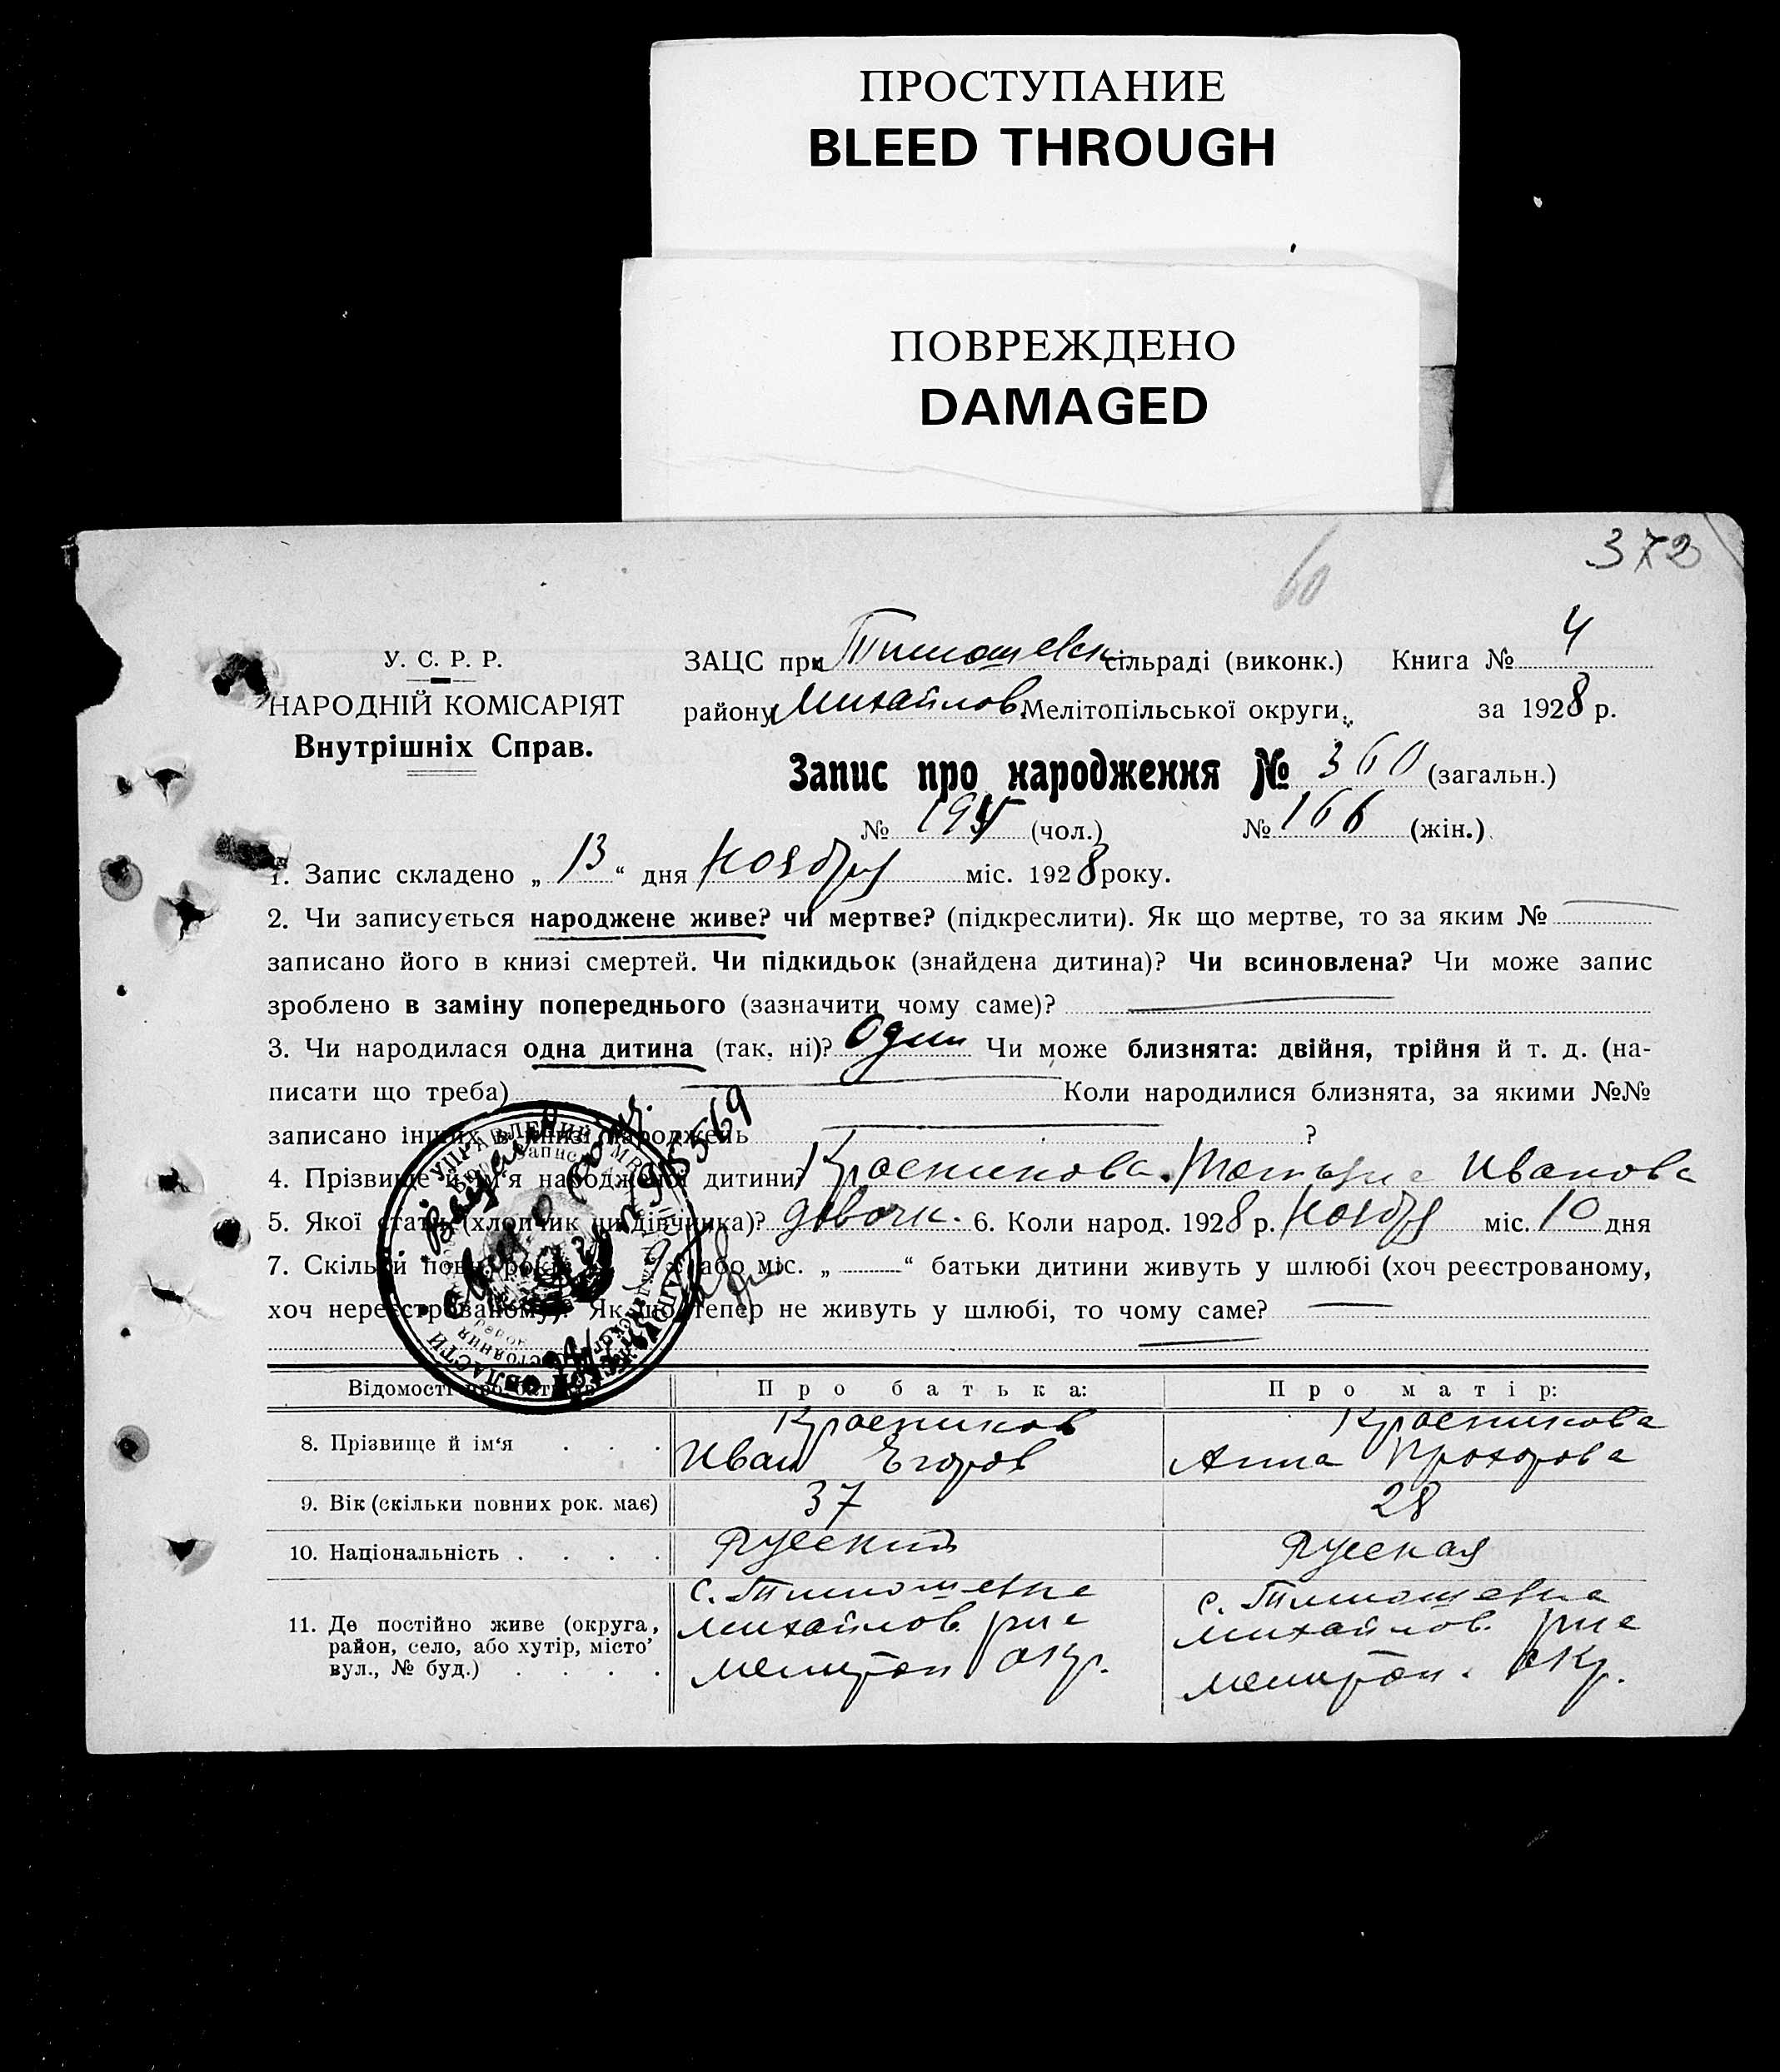 ПРОСТУПАНИЕ
BLEED THROUGH
ПОВРЕЖДЕНО
DAMAGED
372
60
У. С. Р. Р.
НАРОДНІЙ КОМІСАРІЯТ
Внутрішніх Справ.
ЗАЦС при Тимошевск сільраді (виконк.) Книга № 4
району Михайлов Мелітопільської округи, за 1928 р.
Запис про народження № 360 (загальн.)
№ (чол.) № 166 (жін.)
1. Запис складено „ 13 “ дня ноября міс. 1928 року.
2. Чи записується народжене живе? чи мертве? (підкреслити). Як що мертве, то за яким №
записано його в книзі смертей. Чи підкидьок (знайдена дитина)? Чи всиновлена? Чи може запис
зроблено в заміну попереднього (зазначити чому саме)?
3. Чи народилася одна дитина (так, ні)? один Чи може близнята: двійня, трійня й т. д. (на-
писати що треба) Коли народилися близнята, за якими №№
записано інших в книзі народжень ?
4. Прізвище й ім'я народженої дитини? Красникова Татьяна Иванова
5. Якої статі (хлопчик чи дівчинка)? девочк. 6. Коли народ. 1928 р. ноября міс. 10 дня
7. Скільки повн. років або міс. „ “ батьки дитини живуть у шлюбі (хоч реєстрованому,
хоч нереєстрованому)? Як що тепер не живуть у шлюбі, то чому саме?
Відомості про батьків Про батька: Про матір:
8. Прізвище й ім'я . . . Красников Иван Егоров Красникова Анна Прохорова
9. Вік (скільки повних рок. має) 37 28
10. Національність . . . . Русский Русская
11. Де постійно живе (округа, с. Тимошевка с. Тимошевка
район, село, або хутір, місто, Михайлов. рна Михайлов. рна
вул., № буд.) . . . . Мелитоп окр. Мелитоп. окр.